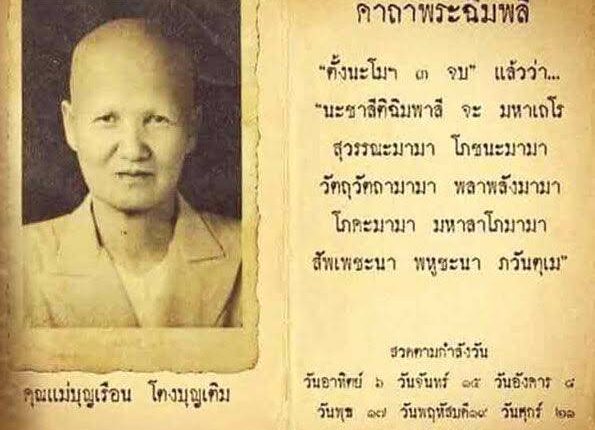 คาถาพระฉิมพลี
"ตั้งนะโมฯ ๓ จบ" แล้วว่า...
"นะชาลีติฉิมพาลี จะ มหาเถโร
สุวรรณะมามา โภชนะมามา
วัตถุวัตถามามา พลาพลังมามา
โภคะมามา มหาลาโภมามา
สัพเพชะนา พหูชะนา ภวันตุเม"
สวดตามกำลังวัน
วันอาทิตย์ ๖ วันจันทร์ ๑๕ วันอังคาร ๘
วันพุธ ๑๗ วันพฤหัสบดี๑๙ วันศุกร์ ๒๑
คุณแม่บุญเรือน โตงบุญเติม